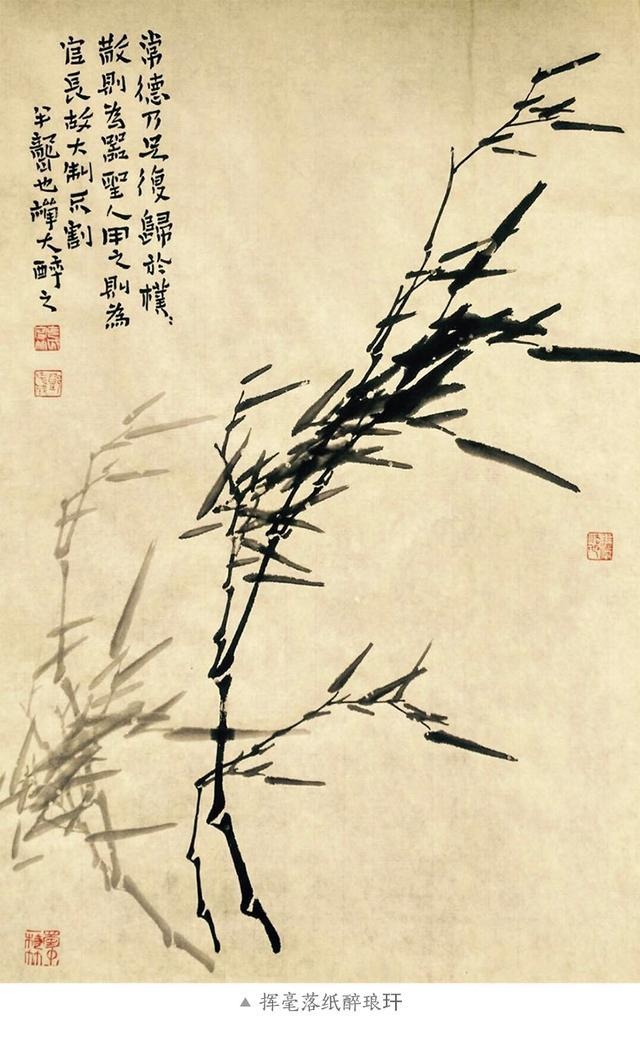 常德乃足復歸於樸〻
散則為器聖人用之則為
官長故大制不割
半聾也禪大醉之
▲ 挥毫落纸醉琅玕